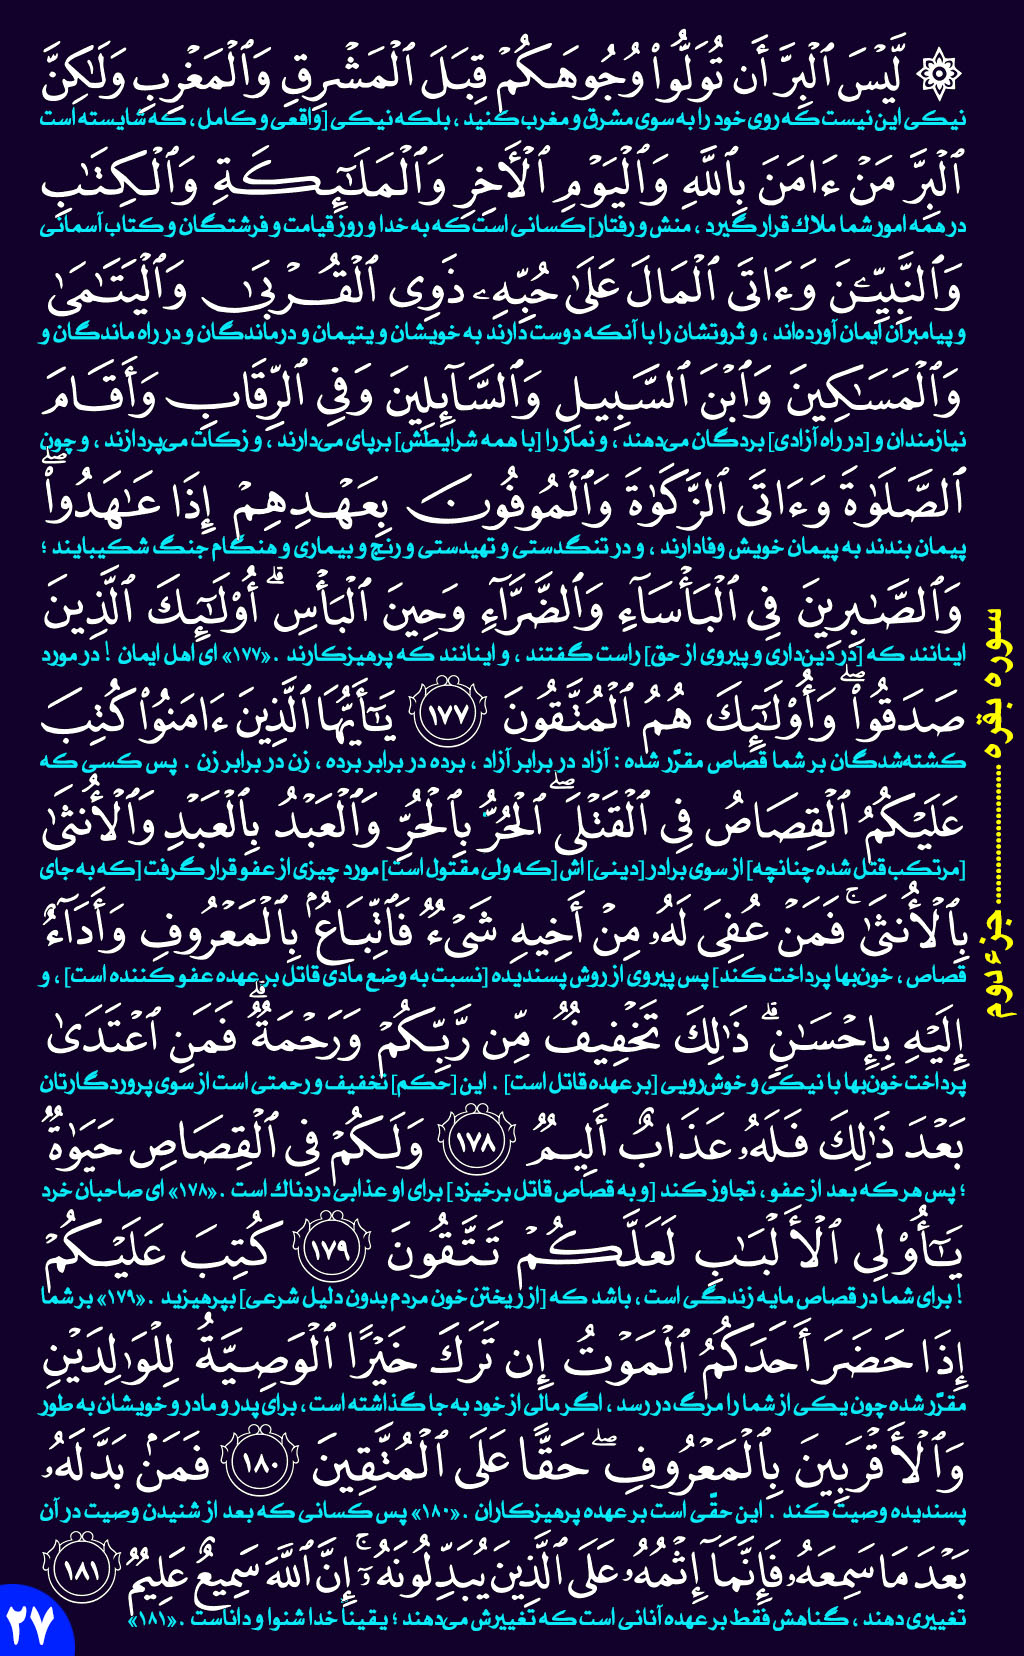 ۞ لَّيْسَ ٱلْبِرَّ أَن تُوَلُّوا۟ وُجُوهَكُمْ قِبَلَ ٱلْمَشْرِقِ وَٱلْمَغْرِبِ وَلَـٰكِنَّ
نیکی این نیست که روی خود را به سوی مشرق و مغرب کنید ، بلکه نیکی [واقعی و کامل ، که شایسته است
ٱلْبِرَّ مَنْ ءَامَنَ بِٱللَّهِ وَٱلْيَوْمِ ٱلْـَٔاخِرِ وَٱلْمَلَـٰٓئِكَةِ وَٱلْكِتَـٰبِ
در همه امور شما ملاک قرار گیرد ، منش و رفتار] کسانی است که به خدا و روز قیامت و فرشتگان و کتاب آسمانی
وَٱلنَّبِيِّـۧنَ وَءَاتَى ٱلْمَالَ عَلَىٰ حُبِّهِۦ ذَوِى ٱلْقُرْبَىٰ وَٱلْيَتَـٰمَىٰ
و پیامبران ایمان آورده‌اند ، و ثروتشان را با آنکه دوست دارند به خویشان و یتیمان و درماندگان و در راه ماندگان و
وَٱلْمَسَـٰكِينَ وَٱبْنَ ٱلسَّبِيلِ وَٱلسَّآئِلِينَ وَفِى ٱلرِّقَابِ وَأَقَامَ
نیازمندان و [در راه آزادی] بردگان می‌دهند ، و نماز را [با همه شرایطش] برپای می‌دارند ، و زکات می‌پردازند ، و چون
ٱلصَّلَوٰةَ وَءَاتَى ٱلزَّكَوٰةَ وَٱلْمُوفُونَ بِعَهْدِهِمْ إِذَا عَـٰهَدُوا۟ ۖ
پیمان بندند به پیمان خویش وفادارند ، و در تنگدستی و تهیدستی و رنج و بیماری و هنگام جنگ شکیبایند ؛
وَٱلصَّـٰبِرِينَ فِى ٱلْبَأْسَآءِ وَٱلضَّرَّآءِ وَحِينَ ٱلْبَأْسِ ۗ أُو۟لَـٰٓئِكَ ٱلَّذِينَ
اینانند که [در دین‌داری و پیروی از حق] راست گفتند ، و اینانند که پرهیزکارند .«۱۷۷» ای اهل ایمان ! در مورد
صَدَقُوا۟ ۖ وَأُو۟لَـٰٓئِكَ هُمُ ٱلْمُتَّقُونَ ۱۷۷ يَـٰٓأَيُّهَا ٱلَّذِينَ ءَامَنُوا۟ كُتِبَ
کشته‌شدگان بر شما قصاص مقرّر شده : آزاد در برابر آزاد ، برده در برابر برده ، زن در برابر زن . پس کسی که
عَلَيْكُمُ ٱلْقِصَاصُ فِى ٱلْقَتْلَى ۖ ٱلْحُرُّ بِٱلْحُرِّ وَٱلْعَبْدُ بِٱلْعَبْدِ وَٱلْأُنثَىٰ
[مرتکب قتل شده چنانچه] از سوی برادر [دینی] اش [که ولی مقتول است] مورد چیزی از عفو قرار گرفت [که به جای
بِٱلْأُنثَىٰ ۚ فَمَنْ عُفِىَ لَهُۥ مِنْ أَخِيهِ شَىْءٌ فَٱتِّبَاعٌۢ بِٱلْمَعْرُوفِ وَأَدَآءٌ
قصاص ، خون‌بها پرداخت کند] پس پیروی از روش پسندیده [نسبت به وضع مادی قاتل بر عهده عفو کننده است] ، و
إِلَيْهِ بِإِحْسَـٰنٍ ۗ ذَٰلِكَ تَخْفِيفٌ مِّن رَّبِّكُمْ وَرَحْمَةٌ ۗ فَمَنِ ٱعْتَدَىٰ
پرداخت خون‌بها با نیکی و خوش‌رویی [بر عهده قاتل است] . این [حکم] تخفیف و رحمتی است از سوی پروردگارتان
بَعْدَ ذَٰلِكَ فَلَهُۥ عَذَابٌ أَلِيمٌ ۱۷۸ وَلَكُمْ فِى ٱلْقِصَاصِ حَيَوٰةٌ
؛ پس هر که بعد از عفو ، تجاوز کند [و به قصاص قاتل برخیزد] برای او عذابی دردناک است .«۱۷۸» ای صاحبان خرد
يَـٰٓأُو۟لِى ٱلْأَلْبَـٰبِ لَعَلَّكُمْ تَتَّقُونَ ۱۷۹ كُتِبَ عَلَيْكُمْ
! برای شما در قصاص مایه زندگی است ، باشد که [از ریختن خون مردم بدون دلیل شرعی] بپرهیزید .«۱۷۹» بر شما
إِذَا حَضَرَ أَحَدَكُمُ ٱلْمَوْتُ إِن تَرَكَ خَيْرًا ٱلْوَصِيَّةُ لِلْوَٰلِدَيْنِ
مقرّر شده چون یکی از شما را مرگ در رسد ، اگر مالی از خود به جا گذاشته است ، برای پدر و مادر و خویشان به طور
وَٱلْأَقْرَبِينَ بِٱلْمَعْرُوفِ ۖ حَقًّا عَلَى ٱلْمُتَّقِينَ ۱۸۰ فَمَنۢ بَدَّلَهُۥ
پسندیده وصیت کند . این حقّی است بر عهده پرهیزکاران .«۱۸۰» پس کسانی که بعد از شنیدن وصیت در آن
بَعْدَ مَا سَمِعَهُۥ فَإِنَّمَآ إِثْمُهُۥ عَلَى ٱلَّذِينَ يُبَدِّلُونَهُۥٓ ۚ إِنَّ ٱللَّهَ سَمِيعٌ عَلِيمٌ ۱۸۱
تغییری دهند ، گناهش فقط بر عهده آنانی است که تغییرش می‌دهند ؛ یقیناً خدا شنوا و داناست .«۱۸۱»
سوره بقره ........................ جزء دوم
۲۷